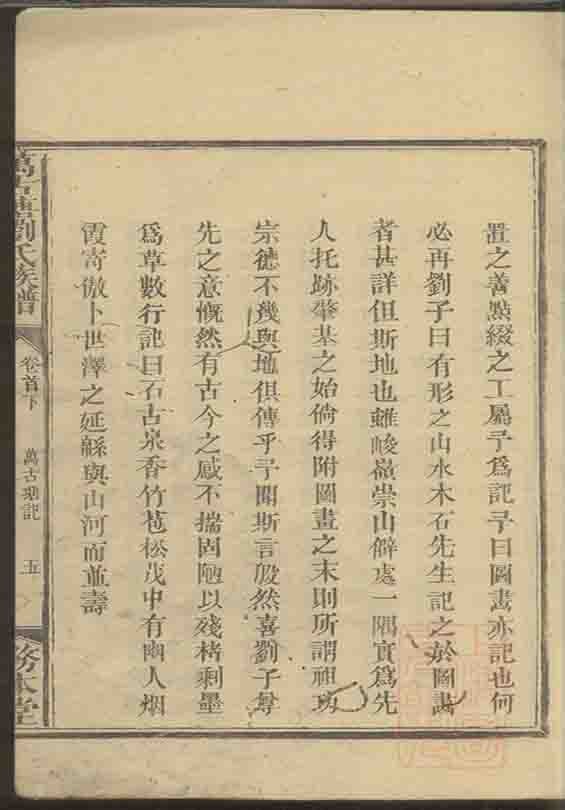 置之善點綴之工屬予爲記予曰圖畫亦記也何
必再劉子曰有形之山水木石先生記之於圖畵
者甚詳但斯地也雖峻嶺崇山僻處一隅實爲先
人托跡肇基之始倘得附圖畫之末則所謂祖功
宗德不幾與地俱傳乎予聞斯言殷然喜劉子尋
先之意慨然有古今之感不揣固陋以殘楮剩墨
爲草數行記曰石古泉香竹苞松茂中有幽人烟
霞寄傲卜世澤之延緜與山河而並壽
萬古塘劉氏族譜
卷首下
萬古塘記
五
務本堂